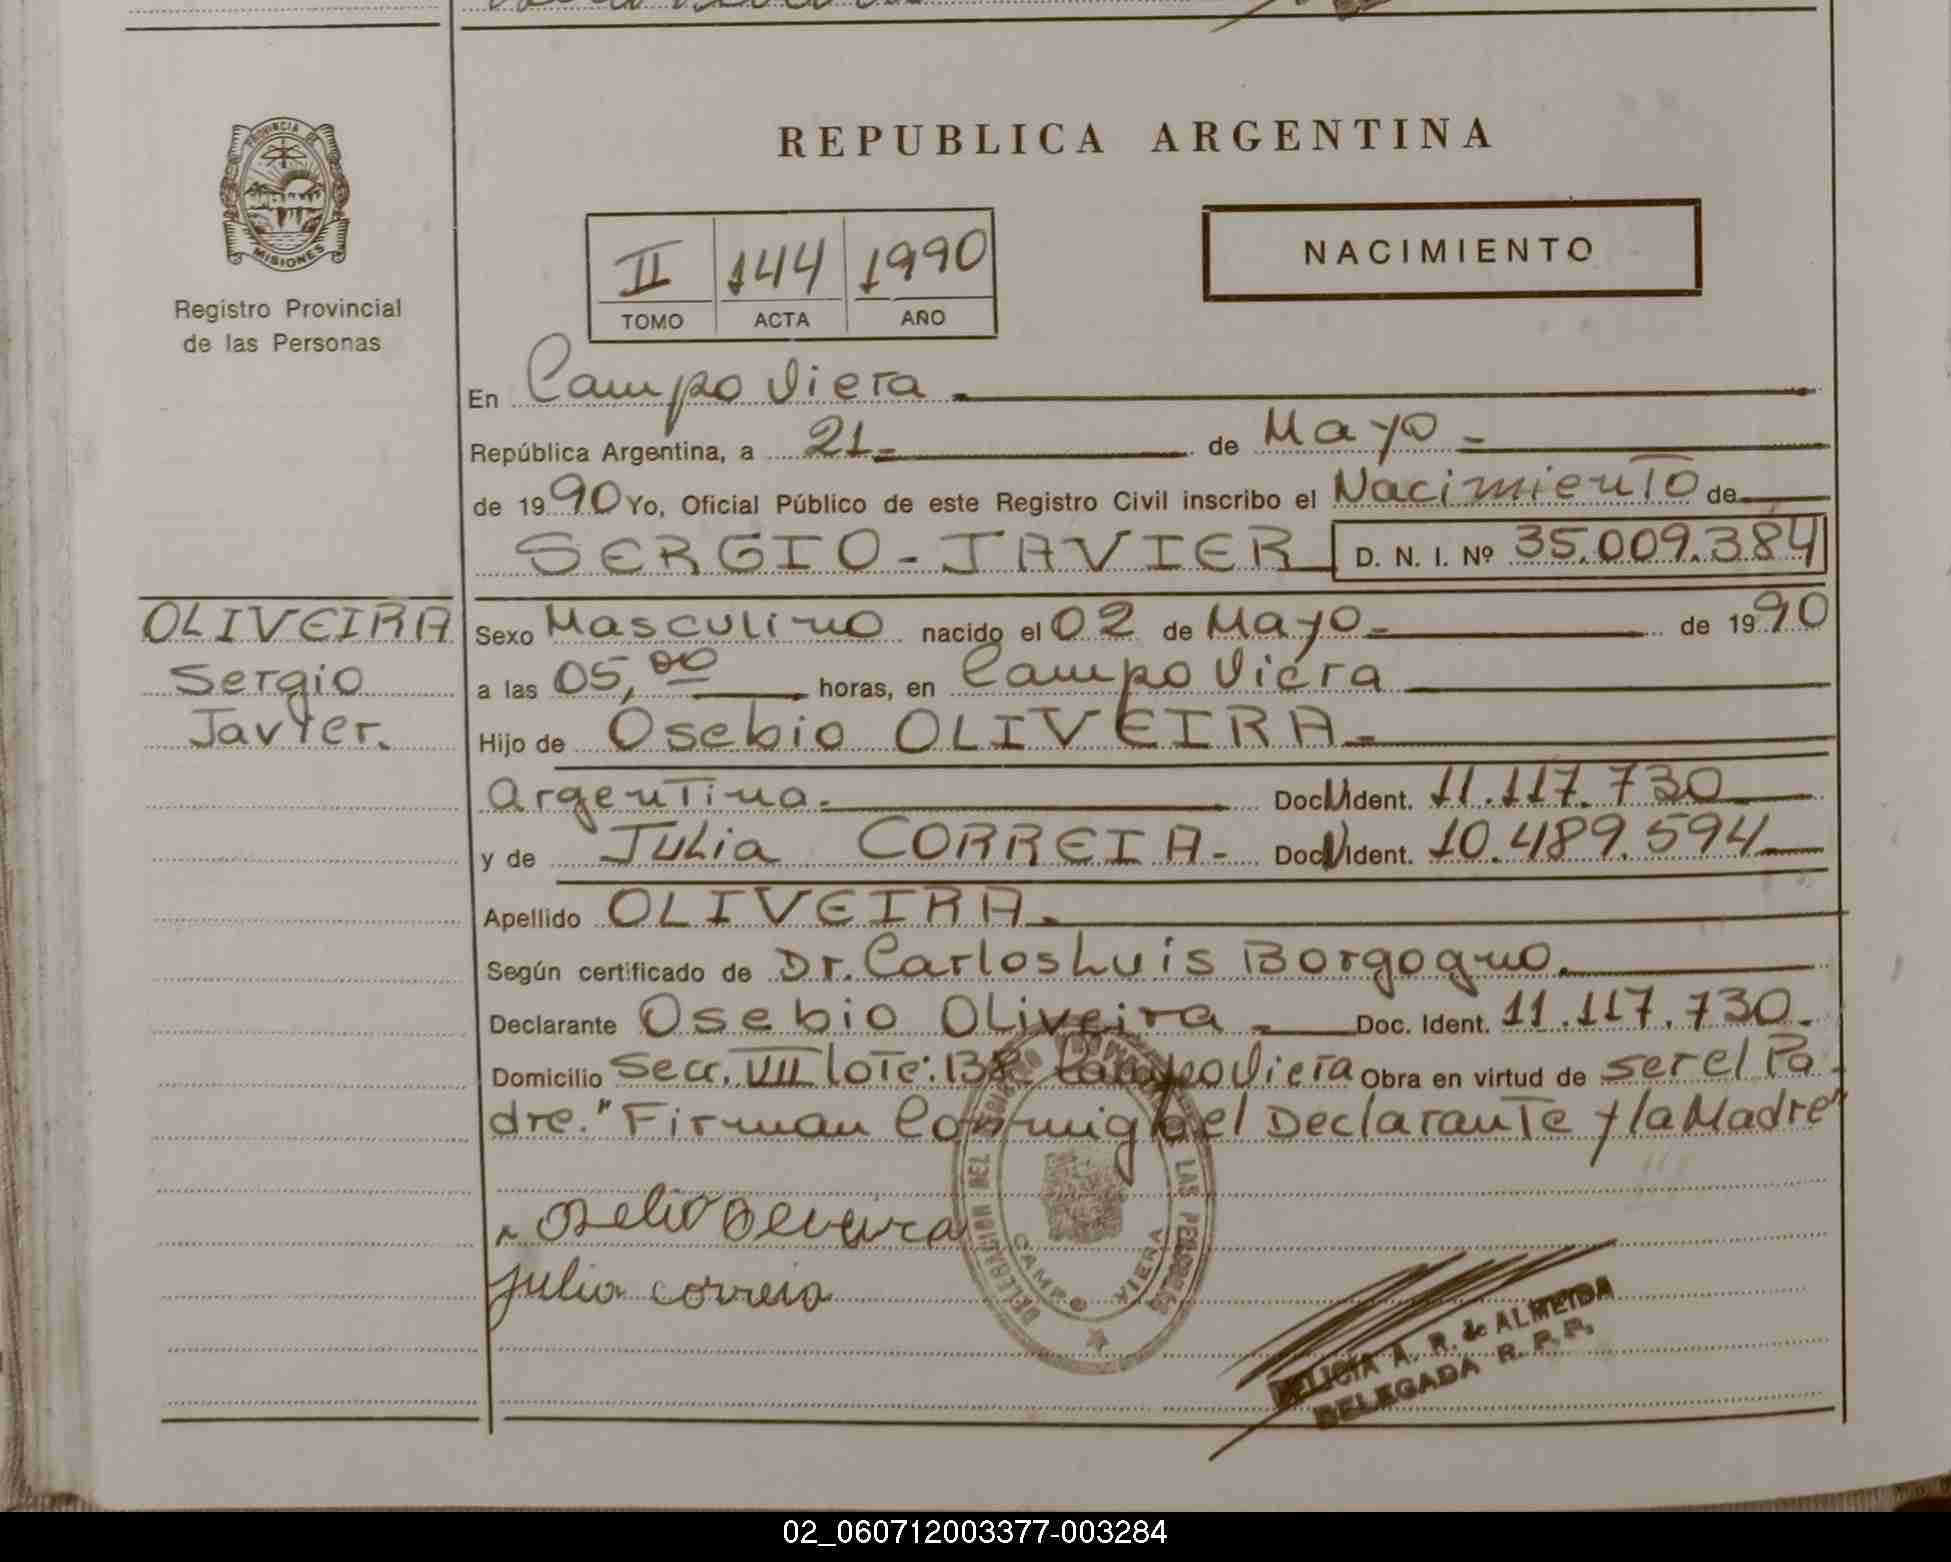 PROVINCIA DE
MISIONES
Registro Provincial
de las Personas
REPUBLICA ARGENTINA
II 144 1990
TOMO ACTA AÑO
NACIMIENTO
En Campo Viera
República Argentina, a 21 de Mayo
de 1990 Yo, Oficial Público de este Registro Civil inscribo el Nacimiento de
SERGIO - JAVIER D. N. I. Nº 35.009.384
OLIVEIRA
Sergio
Javier.
Sexo Masculino nacido el 02 de Mayo de 1990
a las 05,00 horas, en Campo Viera
Hijo de Osebio OLIVEIRA
Argentina. Doc. Ident. 11.117.730
y de Julia CORREIA Doc. Ident. 10.489.594
Apellido OLIVEIRA
Según certificado de Dr. Carlos Luis Borgogno.
Declarante Osebio Oliveira Doc. Ident. 11.117.730.
Domicilio Secc. VIII lote: 138 Campo Viera Obra en virtud de ser el Pa-
dre. "Firman Conmigo el Declarante y la Madre"
Osebio Oliveira
Julia correia
DELEGACION DEL REGISTRO LAS PERSONAS
CAMPO VIERA
FELICIA A. R. de ALMEIDA
DELEGADA R. P. P.
02_060712003377-003284